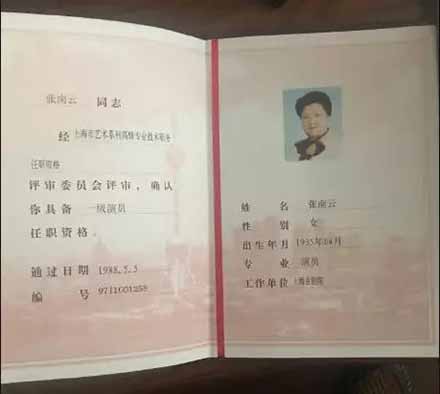 张南云 同志
经 上海市艺术系列高级专业技术职务
任职资格
评审委员会评审，确认
你具备 一级演员
任职资格。
通过日期 1988.5.5
编 号 9711001258
姓 名 张南云
性 别 女
出生年月 1935年04月
专 业 演员
工作单位